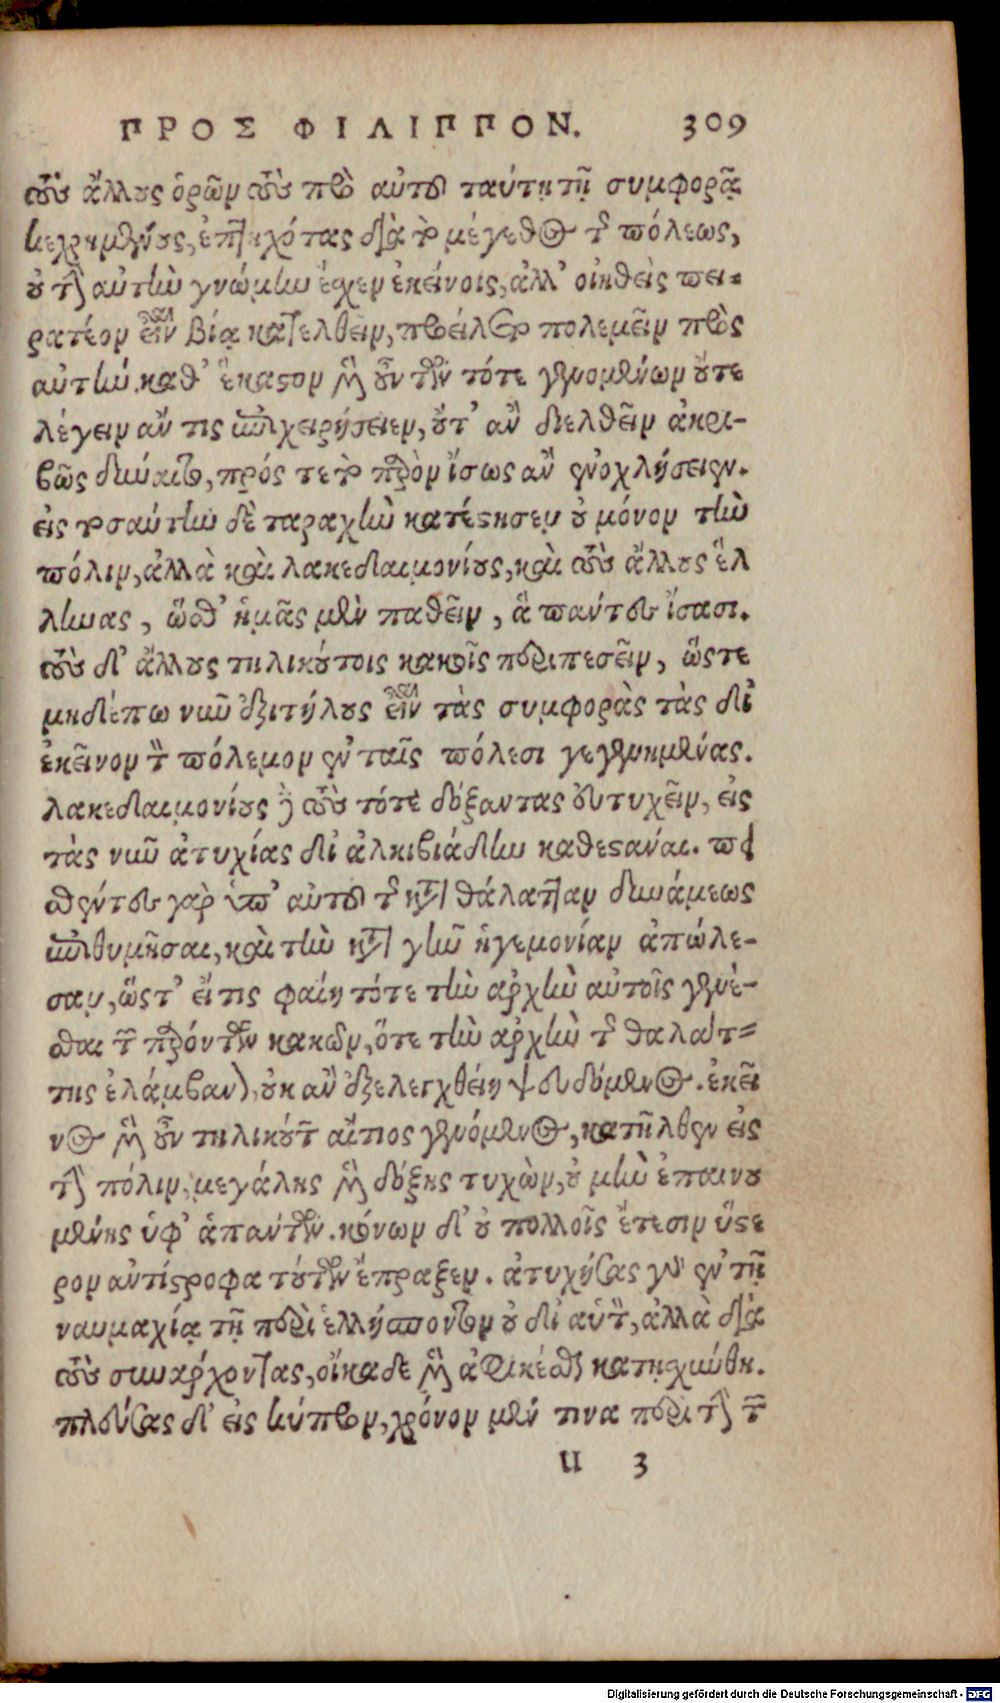 ΠΡΟΣ ΦΙΛΙΠΠΟΝ. 309
τοὺς ἄλλους ὁρῶν τοὺς πρὸ αὐτοῦ ταύτῃ τῇ συμφορᾷ
κεχρημένους, ἐπτηχότας διὰ τὸ μέγεθος τῆς πόλεως,
οὐ τὴν αὐτὴν γνώμην ἔχεν ἐκείνοις, ἀλλ' οἰηθεὶς πει-
ρατέον εἶναι βίᾳ κατελθεῖν, προείλετο πολεμεῖν πρὸς
αὐτήν. καθ' ἕκαστον μὲν οὖν τῶν τότε γενομένων οὔτε
λέγειν ἄν τις ἐπιχειρήσειεν, οὔτ' ἂν διελθεῖν ἀκρι-
βῶς δύναιτο, πρός τε τὸ παρὸν ἴσως ἂν ἐνοχλήσειεν.
εἰς τοσαύτην δὲ ταραχὴν κατέστησεν οὐ μόνον τὴν
πόλιν, ἀλλὰ καὶ λακεδαιμονίους, καὶ τοὺς ἄλλους ἕλ
ληνας, ὥσθ' ἡμᾶς μὲν παθεῖν, ἃ πάντες ἴσασι.
τοὺς δ' ἄλλους τηλικούτοις κακοῖς περιπεσεῖν, ὥστε
μηδέπω νῦν ἐξιτήλους εἶναι τὰς συμφορὰς τὰς δι'
ἐκεῖνον τὸν πόλεμον ἐν ταῖς πόλεσι γεγενημένας.
λακεδαιμονίους δὲ τοὺς τότε δόξαντας εὐτυχεῖν, εἰς
τὰς νῦν ἀτυχίας δι' ἀλκιβιάδην καθεστάναι. πει
σθέντες γὰρ ὑπ' αὐτοῦ τῆς κατὰ θάλατταν δυνάμεως
ἐπιθυμῆσαι, καὶ τὴν κατὰ γῆν ἡγεμονίαν ἀπώλε-
σαν, ὥστ' εἴ τις φαίη τότε τὴν ἀρχὴν αὐτοῖς γενέ-
σθαι τῶν παρόντων κακῶν, ὅτε τὴν ἀρχὴν τῆς θαλάτ-
της ἐλάμβανον, οὐκ ἂν ἐξελεγχθείη ψευδόμενος. ἐκεῖ
νος μὲν οὖν τηλικούτων αἴτιος γενόμενος, κατῆλθεν εἰς
τὴν πόλιν, μεγάλης μὲν δόξης τυχὼν, οὐ μὴν ἐπαινου
μένης ὑφ' ἁπάντων. κόνων δ' οὐ πολλοῖς ἔτεσιν ὕστε
ρον ἀντίστροφα τούτων ἔπραξεν. ἀτυχήσας γὰρ ἐν τῇ
ναυμαχίᾳ τῇ περὶ ἑλλήσποντον οὐ δι' αὑτὸν, ἀλλὰ διὰ
τοὺς συνάρχοντας, οἴκαδε μὲν ἀφικέσθαι κατῃσχύνθη.
πλεύσας δ' εἰς κύπρον, χρόνον μέν τινα περὶ τὴν τῶν
u 3
Digitalisierung gefördert durch die Deutsche Forschungsgemeinschaft - DFG